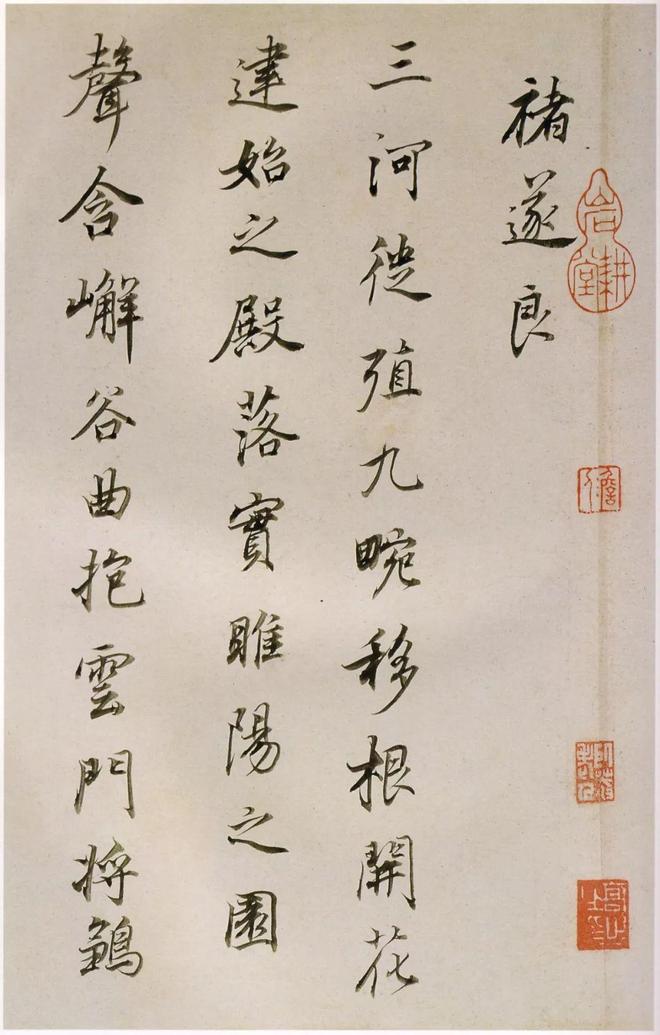 褚遂良
三河徙殖九畹移根開花
建始之殿落實睢陽之園
聲含嶰谷曲抱雲門將鶵